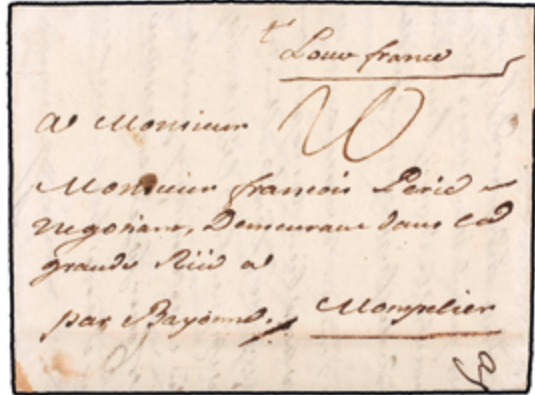 pour france
A Monsieur
Monsieur francois Perié
Negotiant, Demeurant dans la
grande Rüe a
par Bayonne. Monpelier